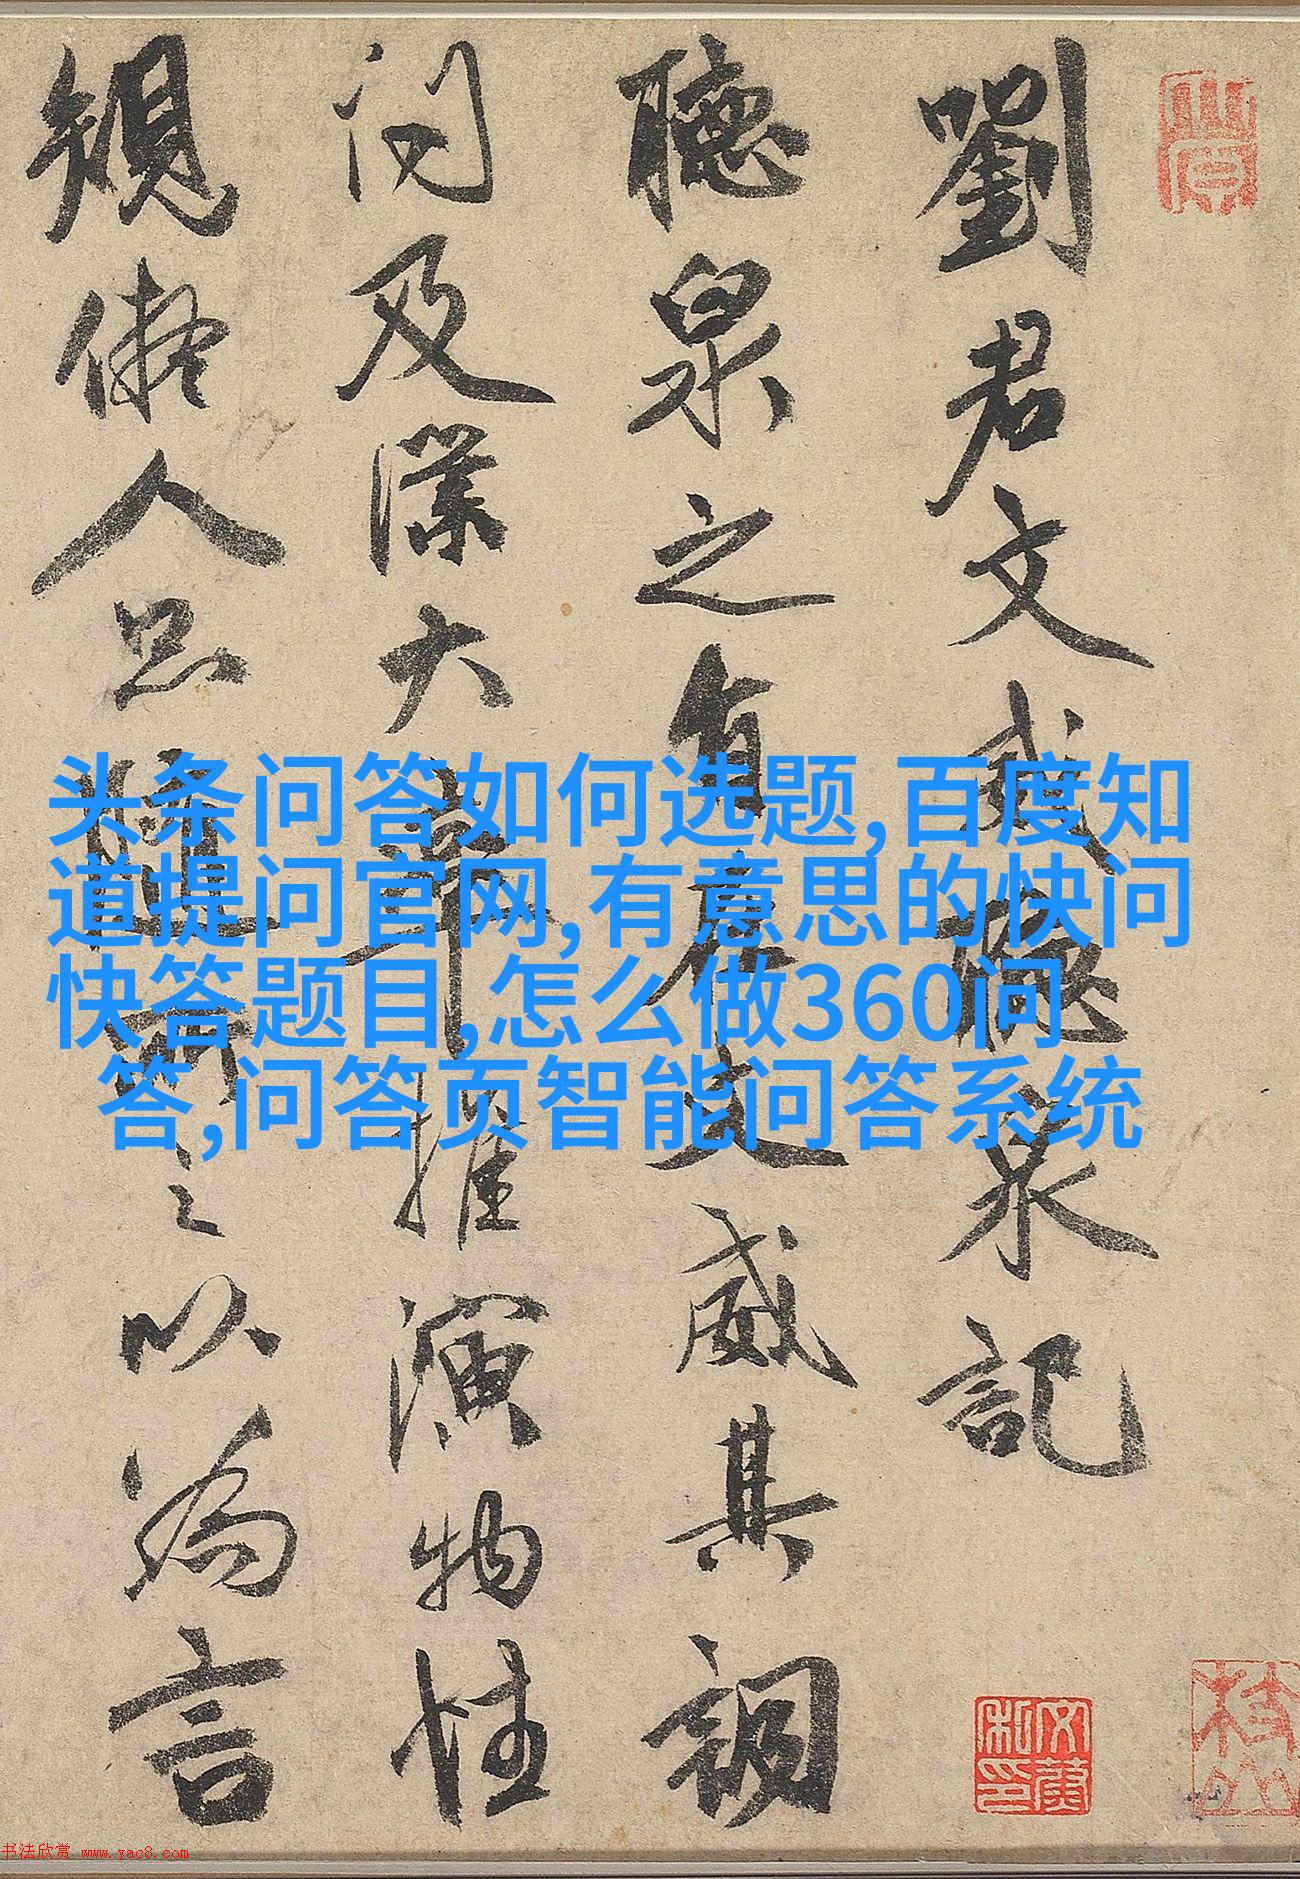 劉君文威聽泉記
聽泉之有文威其詞
及深大推演物性
規儗人品之以為言
头条问答如何选题,百度知
道提问官网,有意思的快问
快答题目,怎么做360问
答,问答页智能问答系统
书法欣赏 www.yac8.com